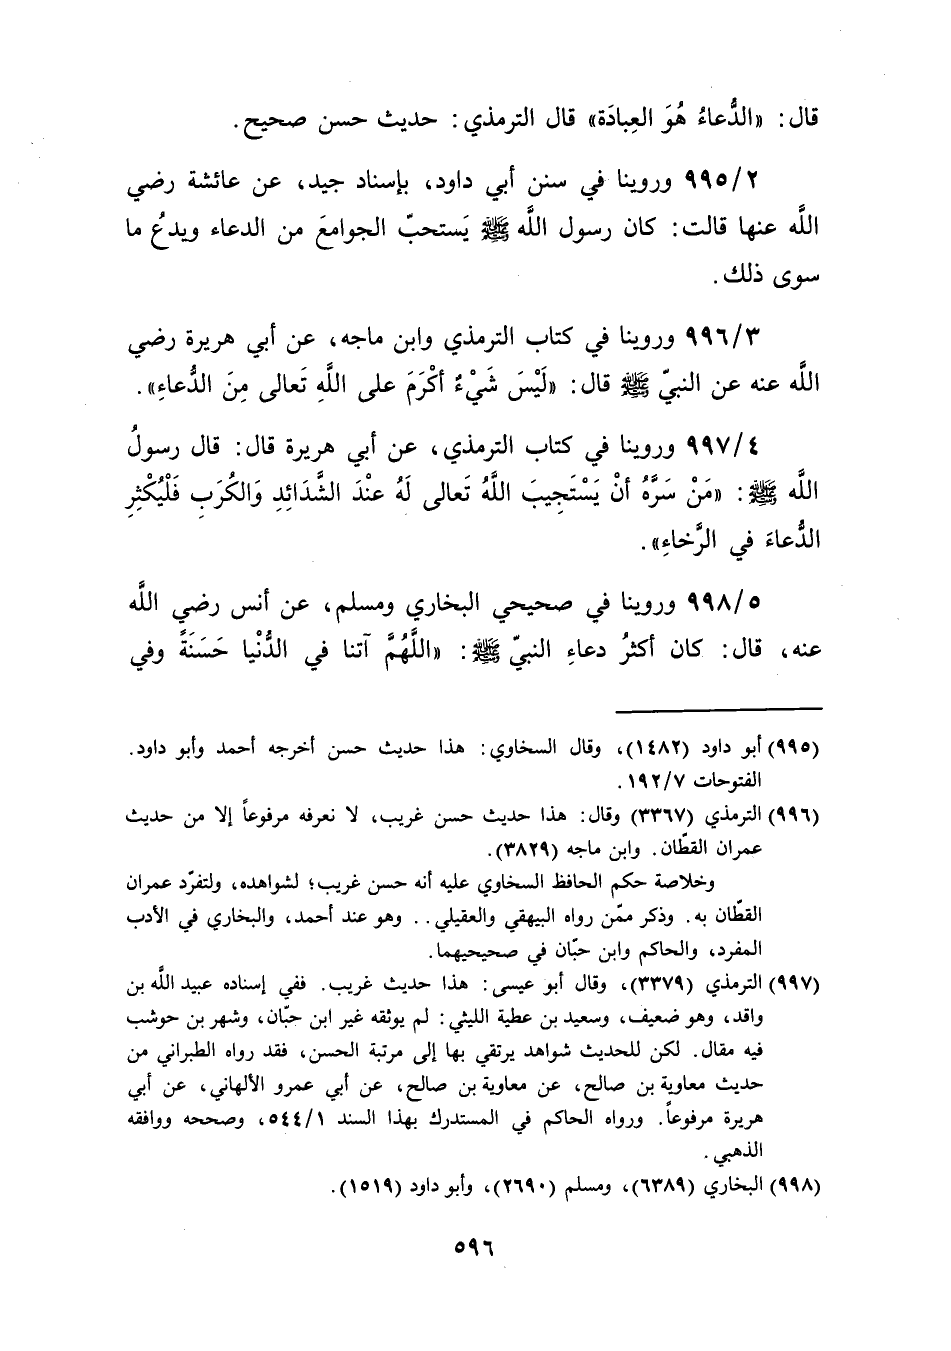 قال: «الدُّعاءُ هُوَ العِبادَة» قال الترمذي: حديث حسن صحيح.
٩٩٥/٢ وروينا في سنن أبي داود، بإسناد جيد، عن عائشة رضي
اللَّه عنها قالت: كان رسول اللَّه ﷺ يَستحبّ الجوامعَ من الدعاء ويدعُ ما
سوى ذلك.
٩٩٦/٣ وروينا في كتاب الترمذي وابن ماجه، عن أبي هريرة رضي
اللَّه عنه عن النبيّ ﷺ قال: «لَيْسَ شَيْءٌ أكْرَمَ على اللَّهِ تَعالى مِنَ الدُّعاءِ».
٩٩٧/٤ وروينا في كتاب الترمذي، عن أبي هريرة قال: قال رسولُ
اللَّه ﷺ: «مَنْ سَرَّهُ أنْ يَسْتَجِيبَ اللَّهُ تَعالى لَهُ عنْدَ الشَّدائِدِ وَالكُرَبِ فَلْيُكْثِرِ
الدُّعاءَ في الرَّخاءِ».
٩٩٨/٥ وروينا في صحيحي البخاري ومسلم، عن أنس رضي اللَّه
عنه، قال: كان أكثرُ دعاءِ النبيّ ﷺ: «اللَّهُمَّ آتنا في الدُّنْيا حَسَنَةً وفي
(٩٩٥) أبو داود (١٤٨٢)، وقال السخاوي: هذا حديث حسن أخرجه أحمد وأبو داود.
الفتوحات ١٩٢/٧.
(٩٩٦) الترمذي (٣٣٦٧) وقال: هذا حديث حسن غريب، لا نعرفه مرفوعاً إلا من حديث
عمران القطّان. وابن ماجه (٣٨٢٩).
وخلاصة حكم الحافظ السخاوي عليه أنه حسن غريب؛ لشواهده، ولتفرّد عمران
القطّان به. وذكر ممّن رواه البيهقي والعقيلي.. وهو عند أحمد، والبخاري في الأدب
المفرد، والحاكم وابن حبّان في صحيحيهما.
(٩٩٧) الترمذي (٣٣٧٩)، وقال أبو عيسى: هذا حديث غريب. ففي إسناده عبيد اللَّه بن
واقد، وهو ضعيف، وسعيد بن عطية الليثي: لم يوثقه غير ابن حبّان، وشهر بن حوشب
فيه مقال. لكن للحديث شواهد يرتقي بها إلى مرتبة الحسن، فقد رواه الطبراني من
حديث معاوية بن صالح، عن معاوية بن صالح، عن أبي عمرو الألهاني، عن أبي
هريرة مرفوعاً. ورواه الحاكم في المستدرك بهذا السند ٥٤٤/١، وصححه ووافقه
الذهبي.
(٩٩٨) البخاري (٦٣٨٩)، ومسلم (٢٦٩٠)، وأبو داود (١٥١٩).
٥٩٦